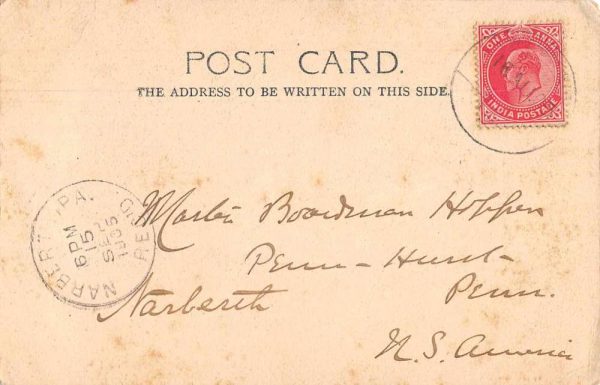 POST CARD.
THE ADDRESS TO BE WRITTEN ON THIS SIDE.
ONE ANNA
INDIA POSTAGE
NARBERTH PA.
6 PM
15
SEP
1905
REC'D
Master Boardman Hopper
Penn-Hurst-
Narberth Penn.
U.S. America